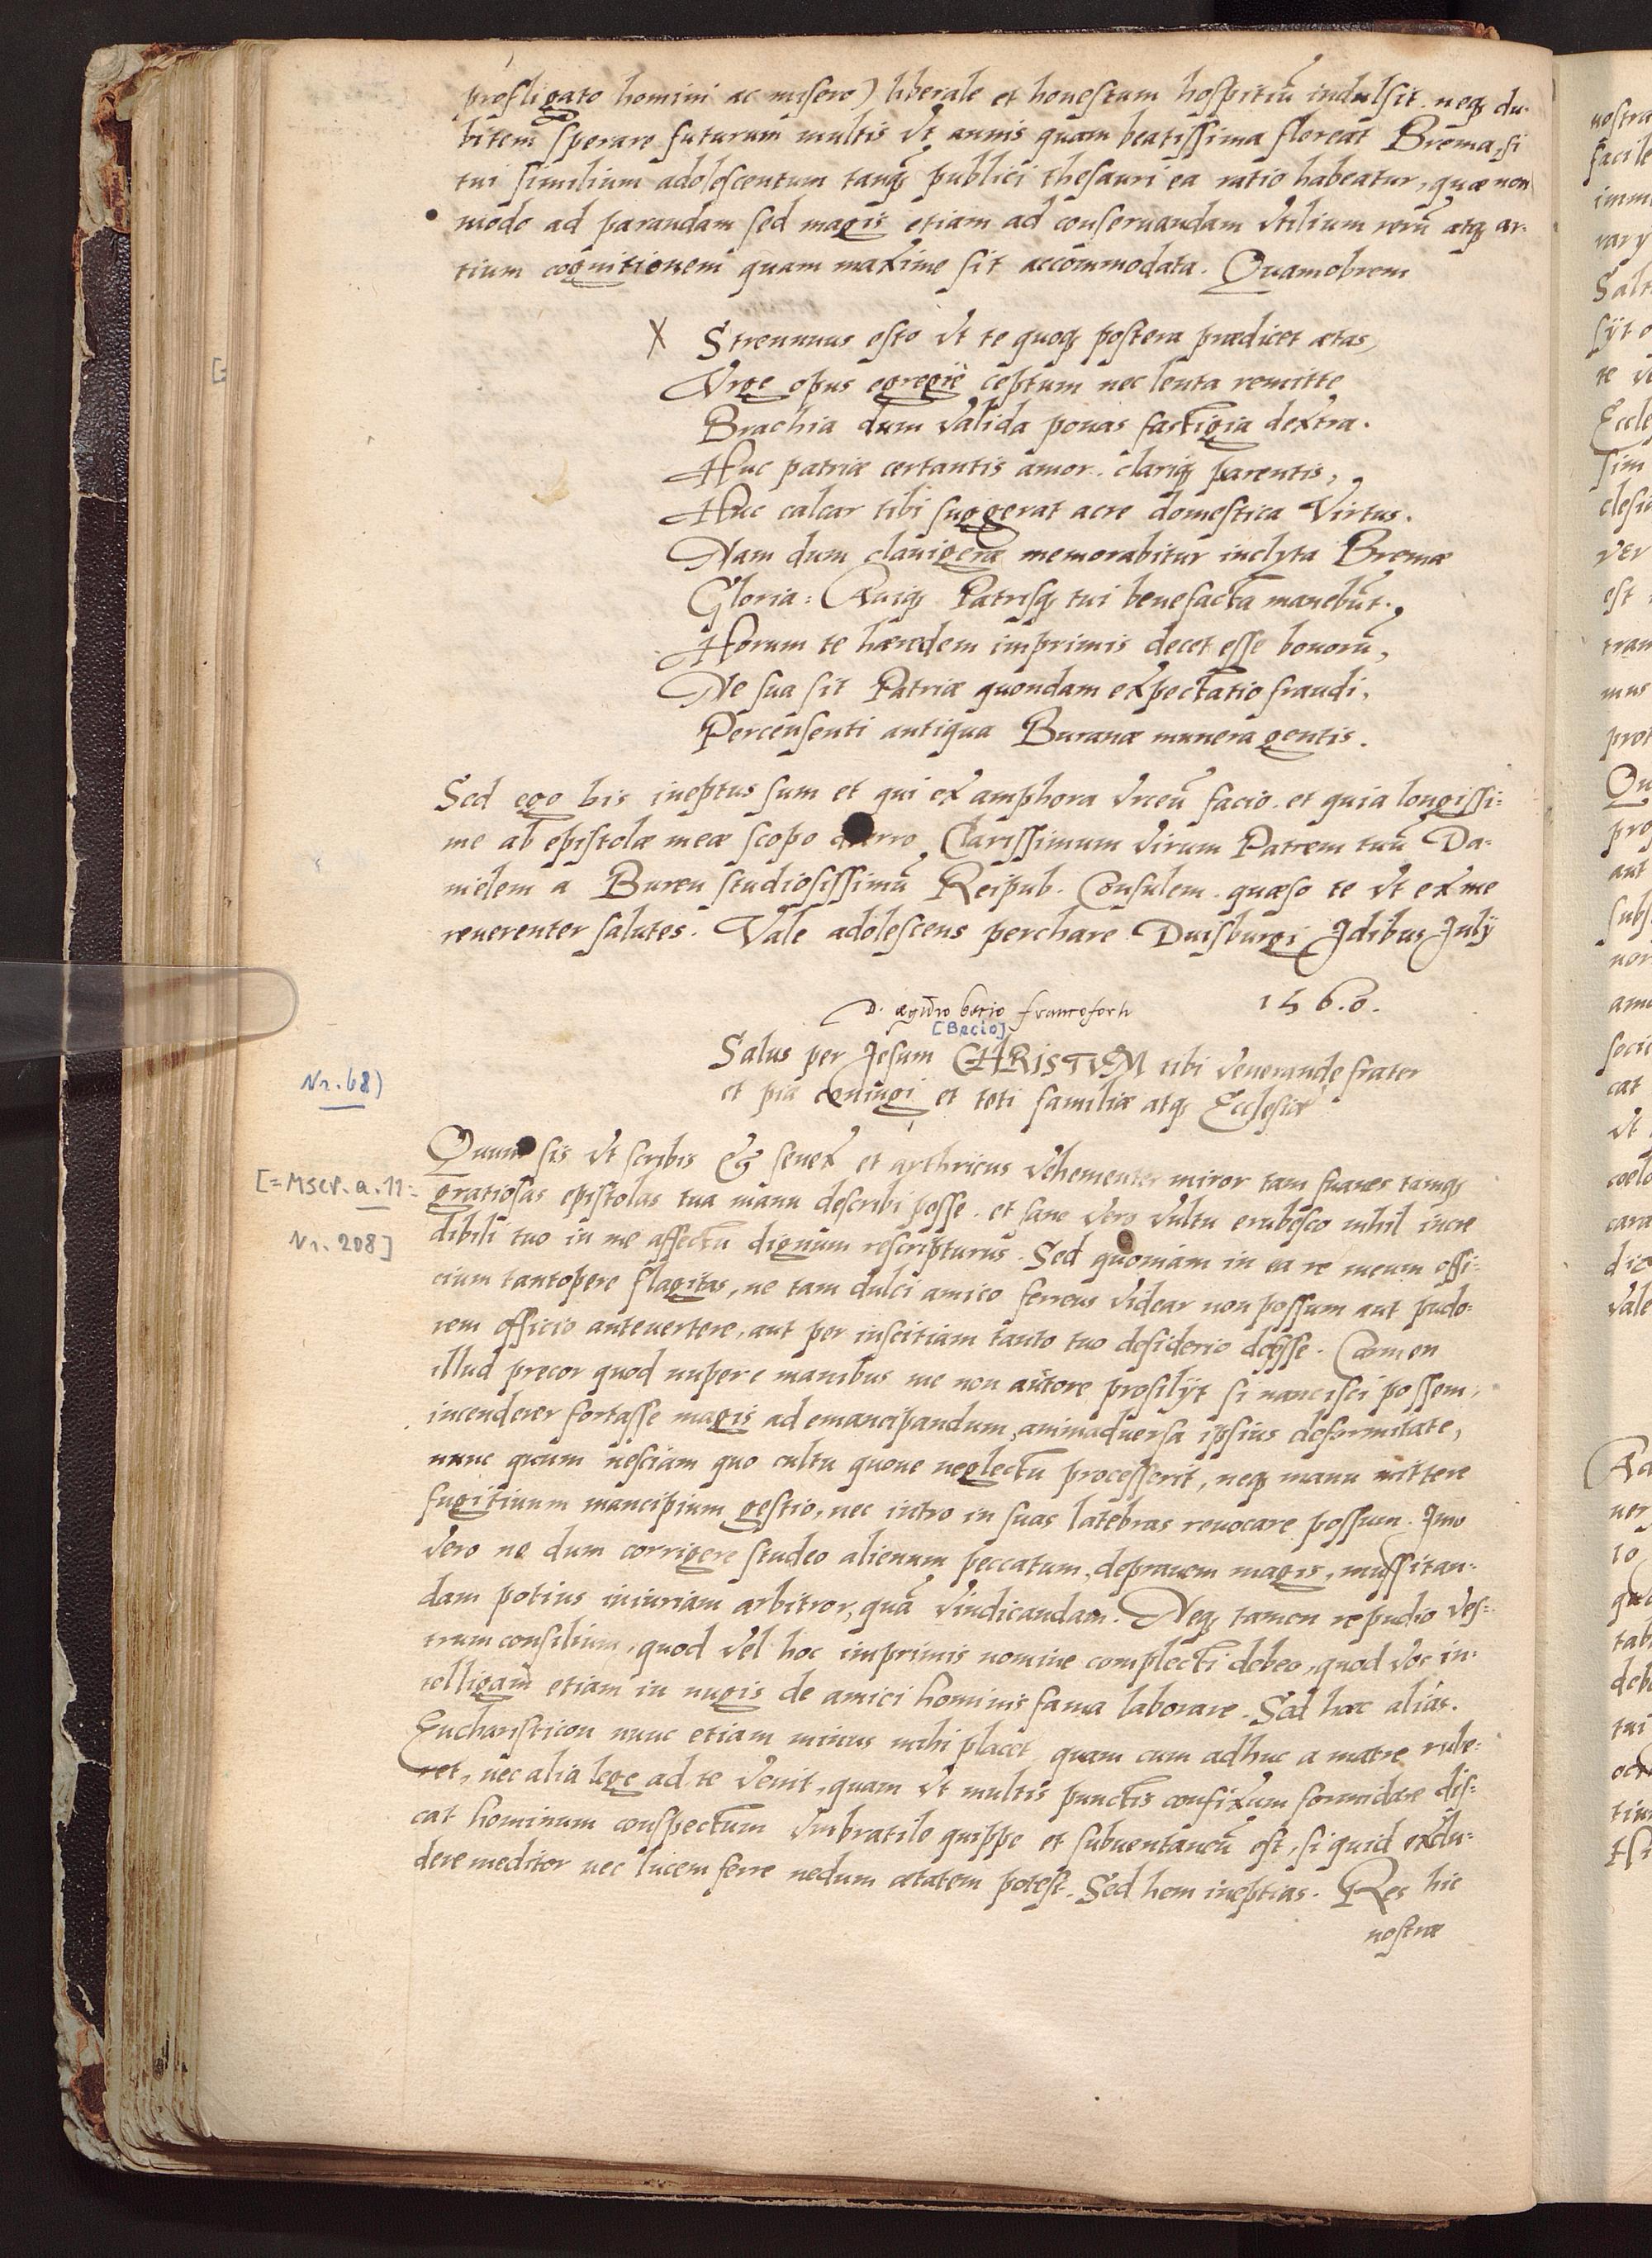 profligato homini ac misero) liberale et honestum hospitiũ indulsit. neq; du-
bitem sperare futurum multis vt annis quam beatissima floreat Brema, si
tui similium adolescentum tanq; publici thesauri ea ratio habeatur, quæ non
modo ad parandam sed magis etiam ad conseruandam vtilium rerũ atq; ar-
tium cognitionem quam maxime sit accommodata. Quamobrem
X Strennuus esto vt te quoq; postera prædicet ætas,
Vrge opus egregiè cæptum nec lenta remitte
Brachia dum valida ponas fastigia dextra.
Huc patriæ certantis amor. clariq; parentis,
Huc calcar tibi suggerat acre domestica Virtus.
Nam dum clauigeræ memorabitur inclyta Bremæ
Gloria: Auiq; Patrisq; tui benefacta manebũt.
Horum te hæredem imprimis decet esse bonorũ,
Ne sua sit Patriæ quondam expectatio fraudi,
Percensenti antiqua Buranæ munera gentis.
Sed ego bis ineptus sum et qui ex amphora vrceũ facio. et quia longissi=
me ab epistolæ meæ scopo aberro Clarissimum virum Patrem tuũ Da=
nielem a Buren studiosissimũ Reipub. Consulem. quæso te vt ex me
reuerenter salutes. Vale adolescens perchare Duisburgi Idibus Julij
1560.
D. ægidio becio francoforti
[Becio]
Salus per Jesum CHRISTVM tibi venerande frater
et piæ coniugi et toti familiæ atq; Ecclesiæ
Nr. 68)
Quum sis vt scribis & senex et arthricus vehementer miror tam suaues tamq;
[= Mscr. a. 11=
gratiosas epistolas tua manu describi posse. et sane vero vultu erubesco nihil incre
Nr. 208]
dibili tuo in me affectu dignum rescripturus. Sed quoniam in ea re meum offi=
cium tantopere flagitas, ne tam dulci amico ferreus videar non possum aut pudo=
rem officio anteuertere, aut per inscitiam tanto tuo desiderio deesse. Carmen
illud precor quod nuper e manibus me non autore prosilijt si nancisci possem,
incenderer fortasse magis ad emancipandum, animaduersa ipsius deformitate,
nunc quum nesciam quo cultu quoue neglectu processerit, neq; manu mittere
fugitiuum mancipium gestio, nec intro in suas latebras reuocare possum. Imo
vero ne dum corrigere studeo alienum peccatum, deprauem magis, mussitan=
dam potius iniuriam arbitror, quã vindicandam. Neq; tamen repudio ves=
trum consilium, quod vel hoc imprimis nomine complecti debeo, quod vos in=
telligam etiam in nugis de amici hominis fama laborare. Sed hæc aliàs.
Eucharisticon nunc etiam minus mihi placet quam cum adhuc a matre rube=
ret, nec alia lege ad te venit, quam vt multis punctis confixum formidare dis=
cat hominum conspectum vmbratile quippe et subuentaneũ est, si quid exclu=
dere meditor nec lucem ferre nedum ætatem potest. Sed hem ineptias. Res hic
nostræ